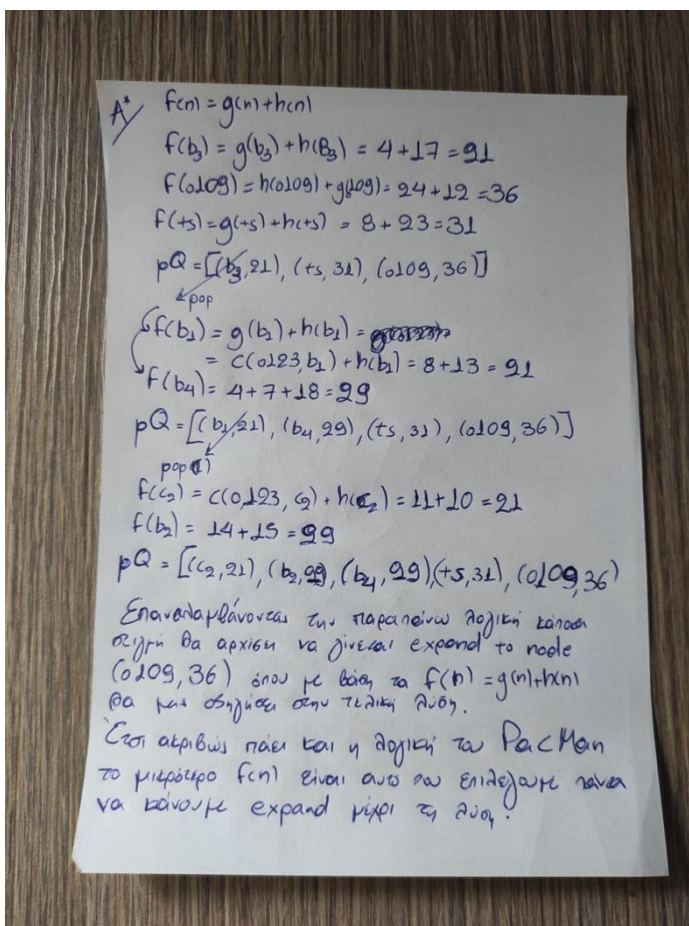 A*
f(n) = g(n) + h(n)
f(b3) = g(b3) + h(B3) = 4+17 = 21
f(o109) = h(o109) + g(109) = 24+12 = 36
f(ts) = g(ts) + h(ts) = 8 + 23 = 31
pQ = [(b3,21), (ts, 31), (o109, 36)]
pop
f(b1) = g(b1) + h(b1) =
= c(o123,b1) + h(b1) = 8+13 = 21
f(b4) = 4+7+18 = 29
pQ = [(b1,21), (b4,29), (ts,31), (o109,36)]
pop(1)
f(c2) = c(o,123, c2) + h(c2) = 11+10 = 21
f(b2) = 14+15 = 29
pQ = [(c2,21), (b2,29), (b4,29), (ts,31), (o109,36)
Επαναλαμβάνοντας την παραπάνω λογική κάποια
στιγμή θα αρχίσει να γίνεται expand το node
(o109,36) όπου με βάση τα f(n) = g(n)+h(n)
θα μας οδηγήσει στην τελική λύση.
Έτσι ακριβώς πάει και η λογική του PacMan
το μικρότερο f(n) είναι αυτό που επιλέγουμε πάντα
να κάνουμε expand μέχρι τη λύση.